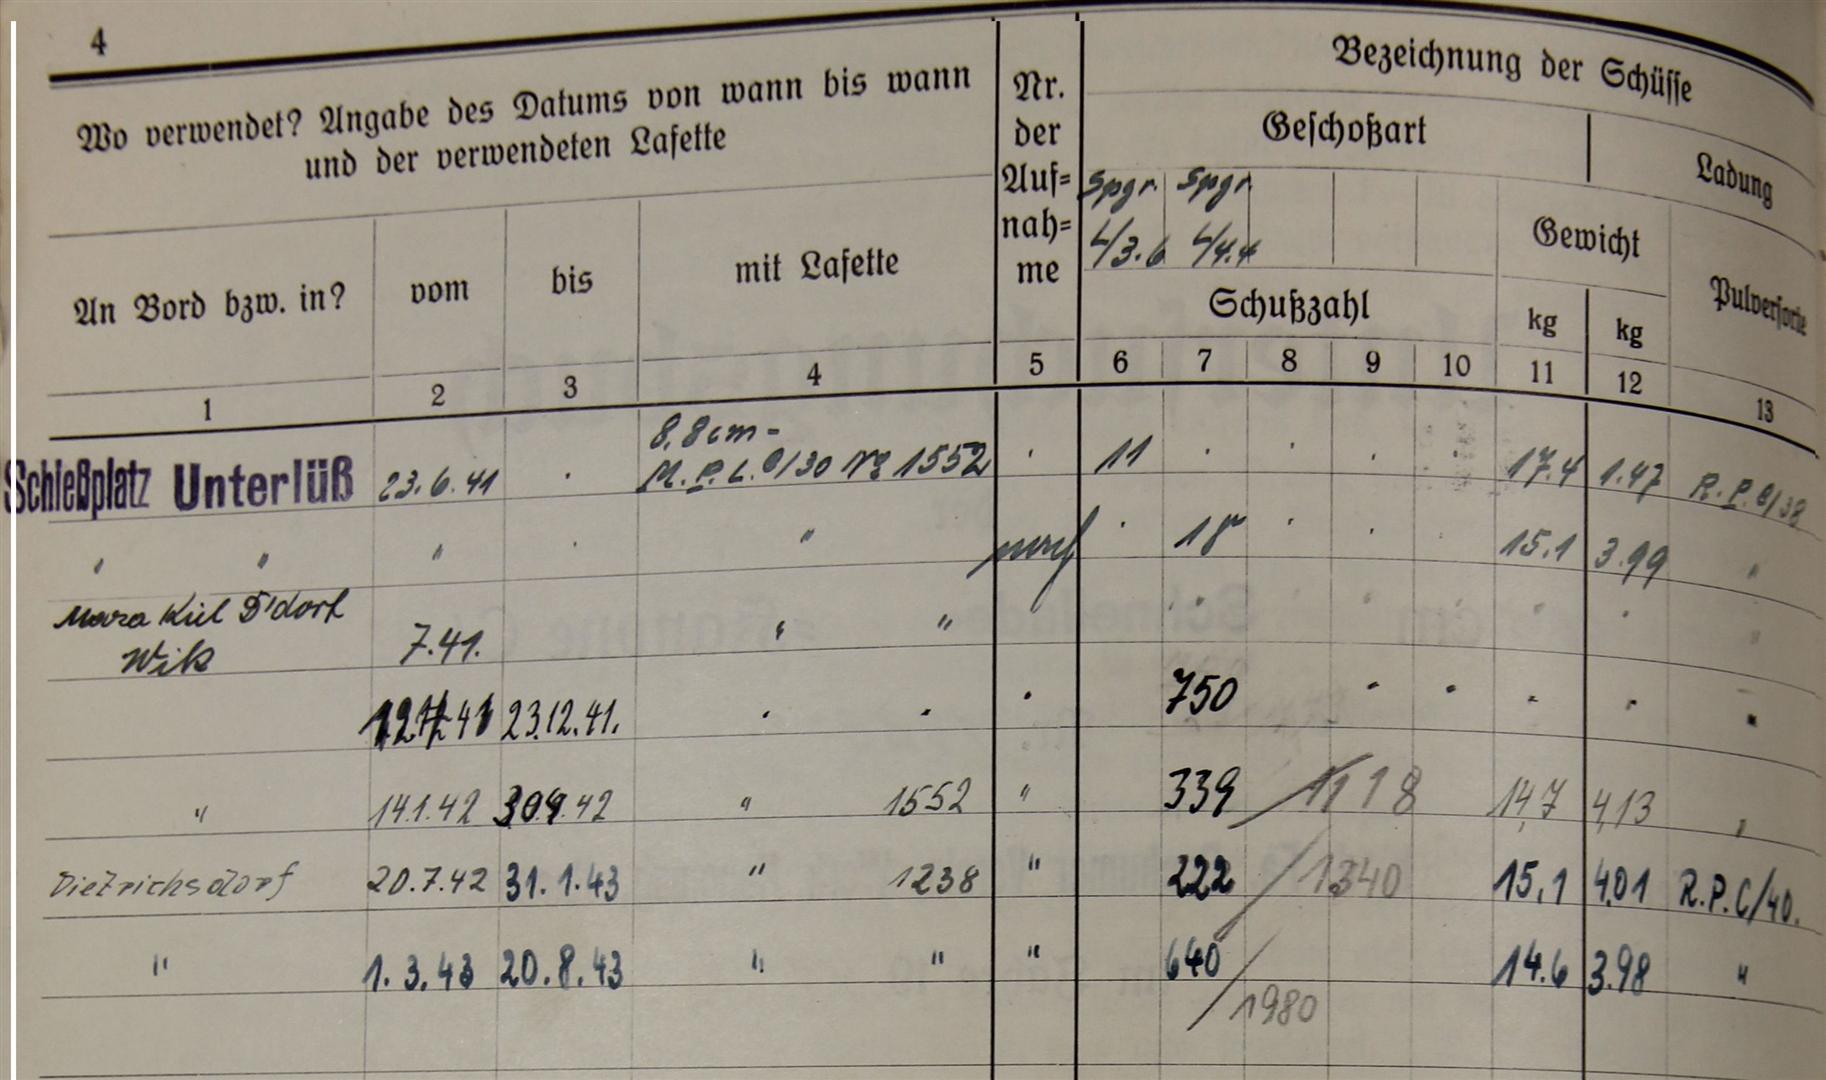 4
Wo verwendet? Angabe des Datums von wann bis wann
und der verwendeten Lafette
Nr.
der
Auf=
nah=
me
Bezeichnung der Schüsse
Geschoßart
Ladung
Spgr. Spgr.
L/3.6 L/4.4
Gewicht
An Bord bzw. in? vom bis mit Lafette
Schußzahl kg kg Pulversorte
1 2 3 4 5 6 7 8 9 10 11 12 13
8,8 cm -
Schießplatz Unterlüß 23.6.41 · M.P.L. C/30 No 1552 · 11 · · · · 17.4 1.47 R.P.C/38
" " " · " · 18 · · · 15.1 3.99 "
Kiel D'dorf
Wik 7.41. " "
41 23.12.41. · · · 750 · · · · "
" 14.1.42 30.9.42 " 1552 " 339 / 1118 14,7 4,13 "
Dietrichsdorf 20.7.42 31.1.43 " 1238 " 222 / 1340 15,1 4.01 R.P.C/40.
" 1.3.43 20.8.43 " " " 640 14.6 3.98 "
/ 1980